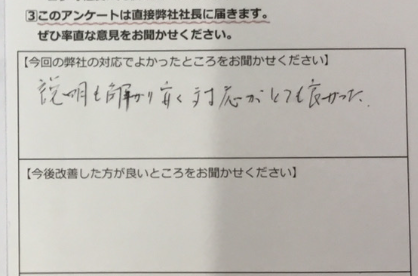 ③このアンケートは直接弊社社長に届きます。
ぜひ率直な意見をお聞かせください。
【今回の弊社の対応でよかったところをお聞かせください】
説明も解かり安く対応がとても良かった.
【今後改善した方が良いところをお聞かせください】